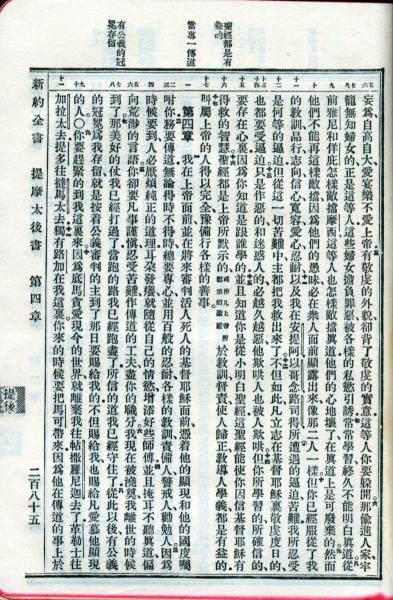 聖經都是有
益的
當專一傳道
有公義的冠
冕存留
妄爲自高自大愛宴樂不愛上帝有敬虔的外貌卻背了敬虔的實意這等人你要躲開那偷進人家牢
籠無知婦女的正是這等人這些婦女擔負罪惡被各樣的私慾引誘常常學習終久不能明白眞道從
前雅尼和佯庇怎樣敵擋摩西這等人也怎樣敵擋眞道他們的心地壞了在眞道上是可廢棄的然而
他們不能再這樣敵擋因爲他們的愚昧必在衆人面前顯露出來像那二人一樣但你已經服從了我
的教訓品行志向信心寬容愛心忍耐以及我在安提阿以哥念路司得所遭遇的逼迫苦難我所忍受
是何等的逼迫但從這一切苦難中主都把我救出來了不但如此凡立志在基督耶穌裏敬虔度日的
也都要受逼迫只是作惡的和迷惑人的必越久越惡他欺哄人也被人欺哄但你所學習的所確信的
要存在心裏因爲你知道是跟誰學的並且知道你是從小明白聖經這聖經能使你因信基督耶穌有
得救的智慧聖經都是上帝所默示的或作凡上帝所默示的聖經於教訓督責使人歸正教導人學義都是有益的
叫屬上帝的人得以完全豫備行各樣的善事
第四章 我在上帝面前並在將來審判活人死人的基督耶穌面前憑着他的顯現和他的國度囑
咐你務要傳道無論得時不得時總要專心並用百般的忍耐各樣的教訓責備人警戒人勸勉人因爲
時候要到人必厭煩純正的道理耳朶發癢就隨從自己的情慾增添好些師傅並且掩耳不聽眞道偏
向荒渺的言語你卻要凡事謹愼忍受苦難作傳道的工夫盡你的職分我現在被澆奠我離世的時候
到了那美好的仗我已經打過了當跑的路我已經跑盡了所信的道我已經守住了從此以後有公義
的冠冕爲我存留就是按着公義審判的主到了那日要賜給我的不但賜給我也賜給凡愛慕他顯現
的人你要趕緊的到我這裏來因爲底馬貪愛現今的世界就離棄我往帖撒羅尼迦去了革勒士往
加拉太去提多往撻馬太去獨有路加在我這裏你來的時候要把馬可帶來因爲他在傳道的事上於
新約全書 提摩太後書 第四章
提後
二百八十五